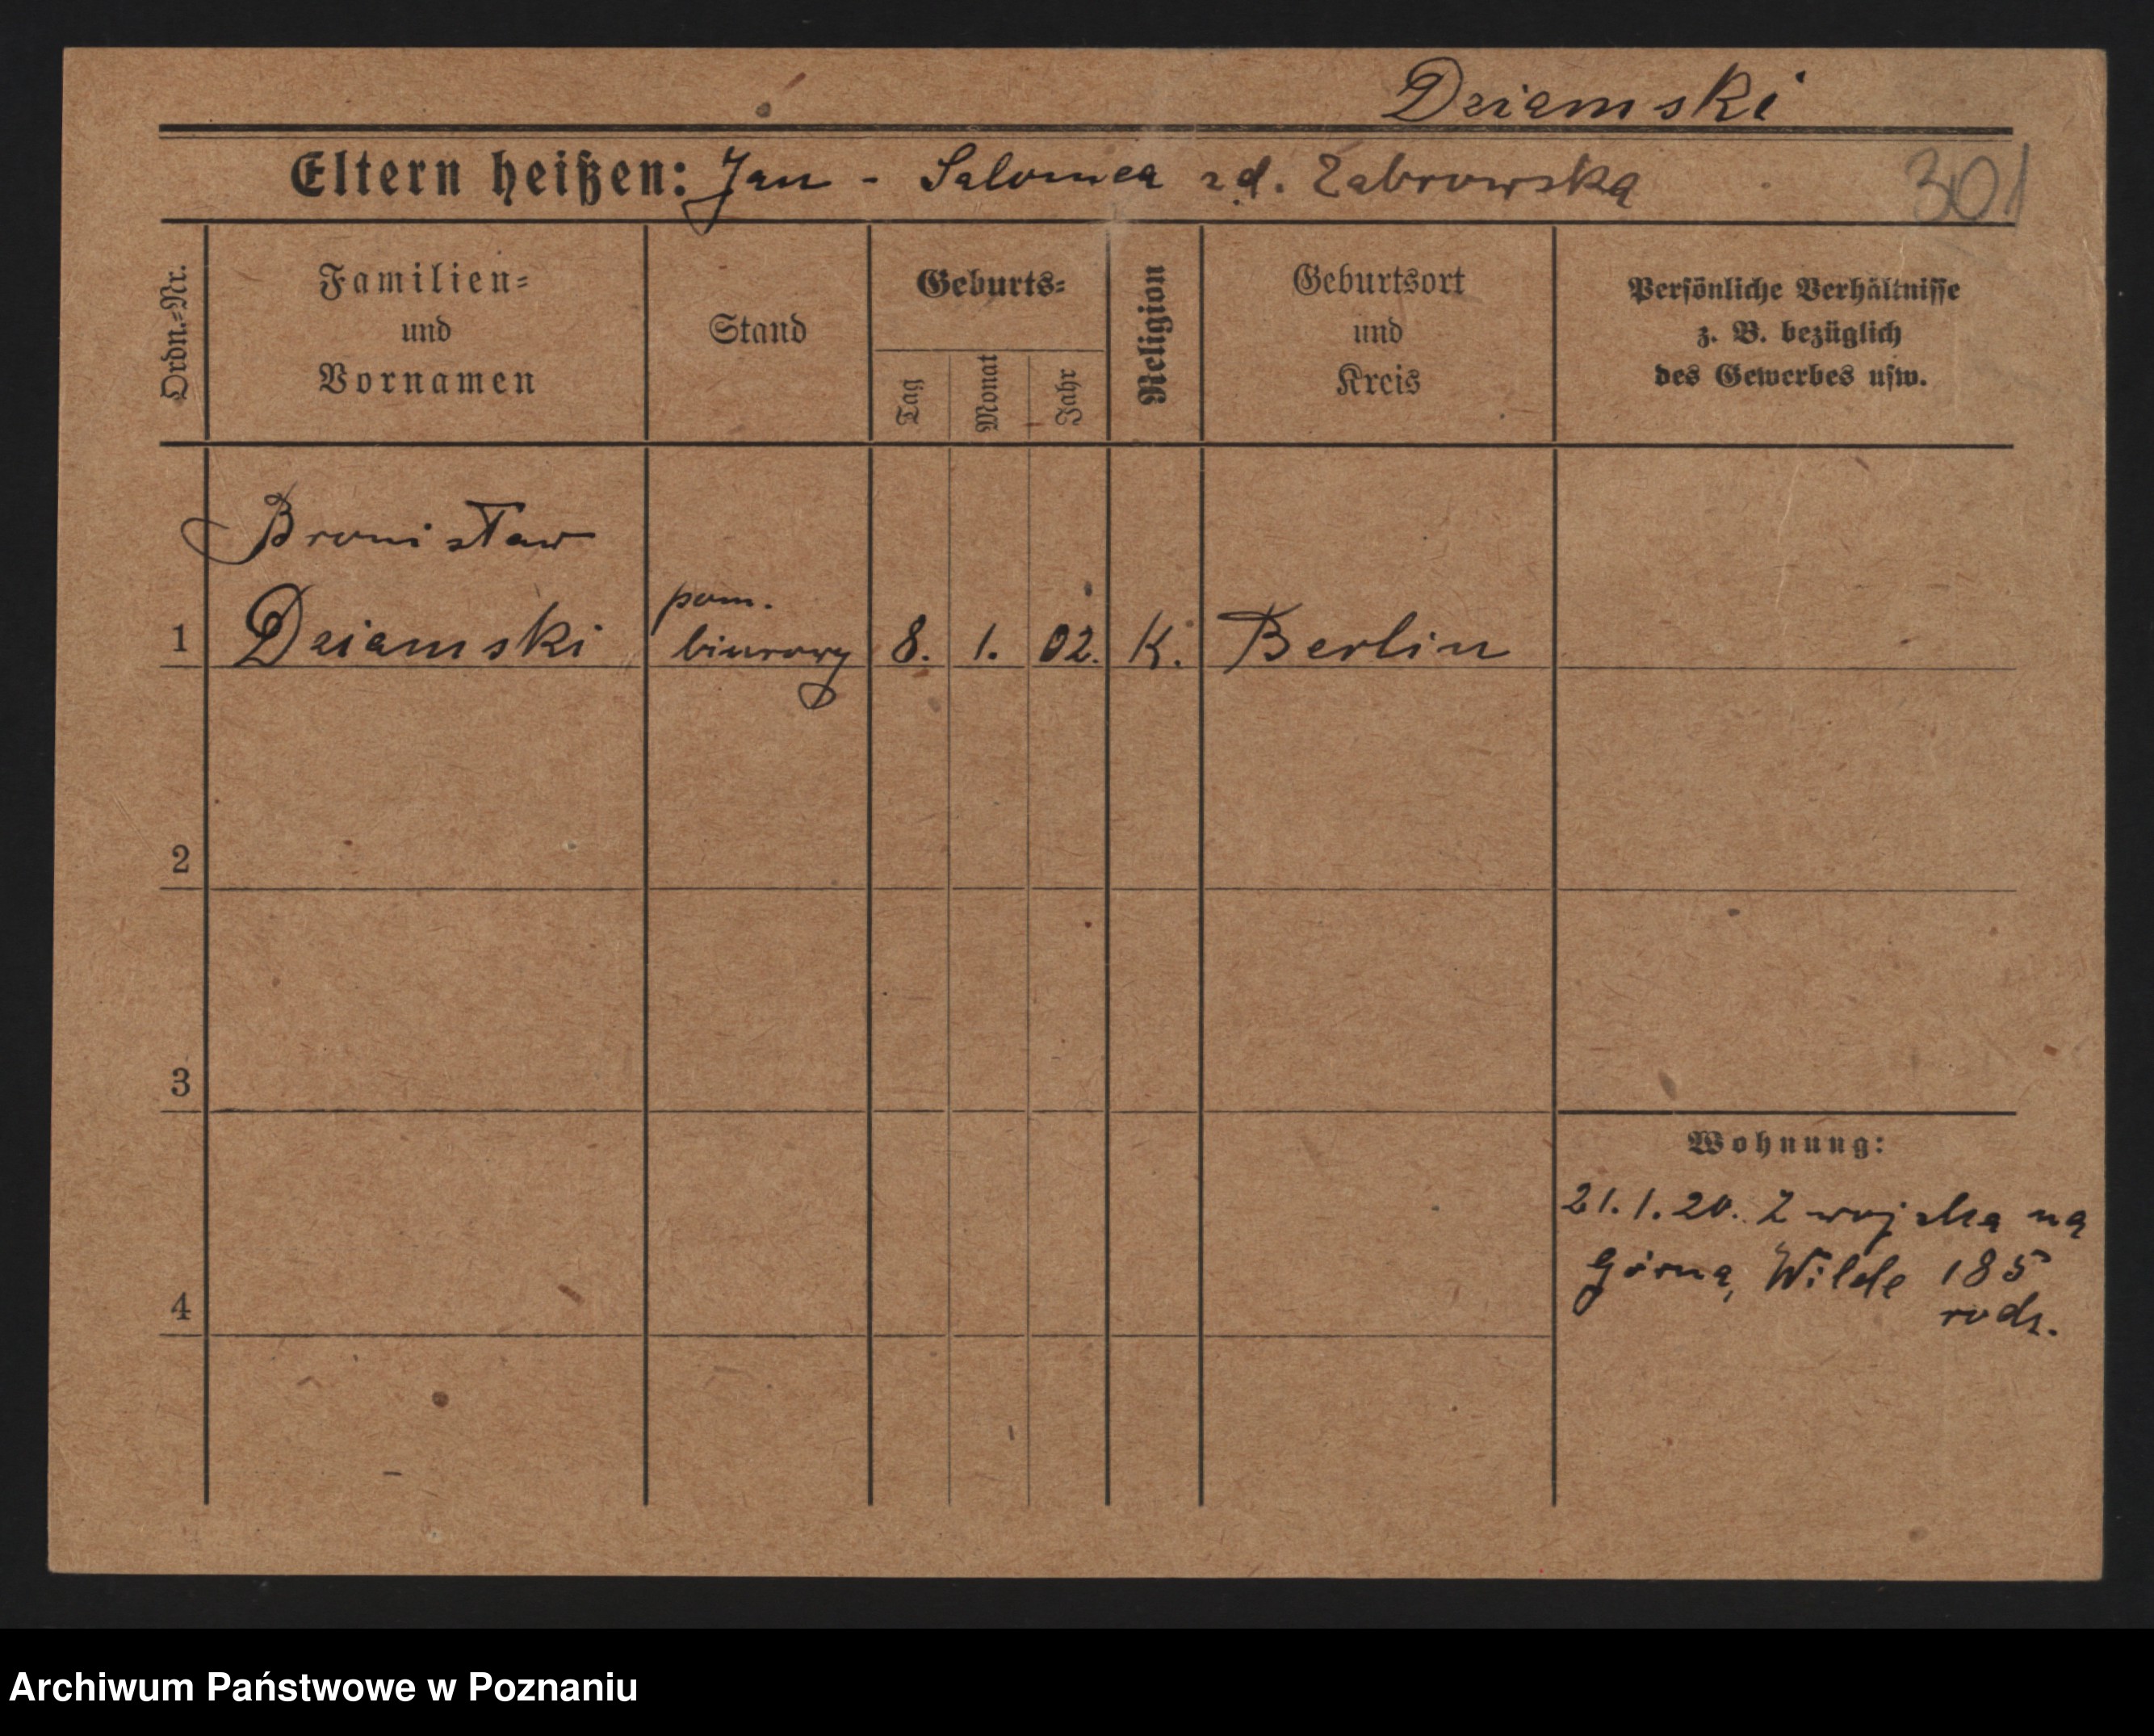 Dziamski
Eltern heißen: Jan - Salomea zd. Zabrowska
301
Ordn.-Nr.
Familien-
und
Vornamen
Stand
Geburts-
Tag
Monat
Jahr
Religion
Geburtsort
und
Kreis
Persönliche Verhältnisse
z. B. bezüglich
des Gewerbes usw.
Bronisław
1 Dziamski
pom.
biurowy
8. 1. 02. K. Berlin
2
3
4
Wohnung:
21.1.20. Z wojska na
Górna, Wilde 185
rodz.
Archiwum Państwowe w Poznaniu